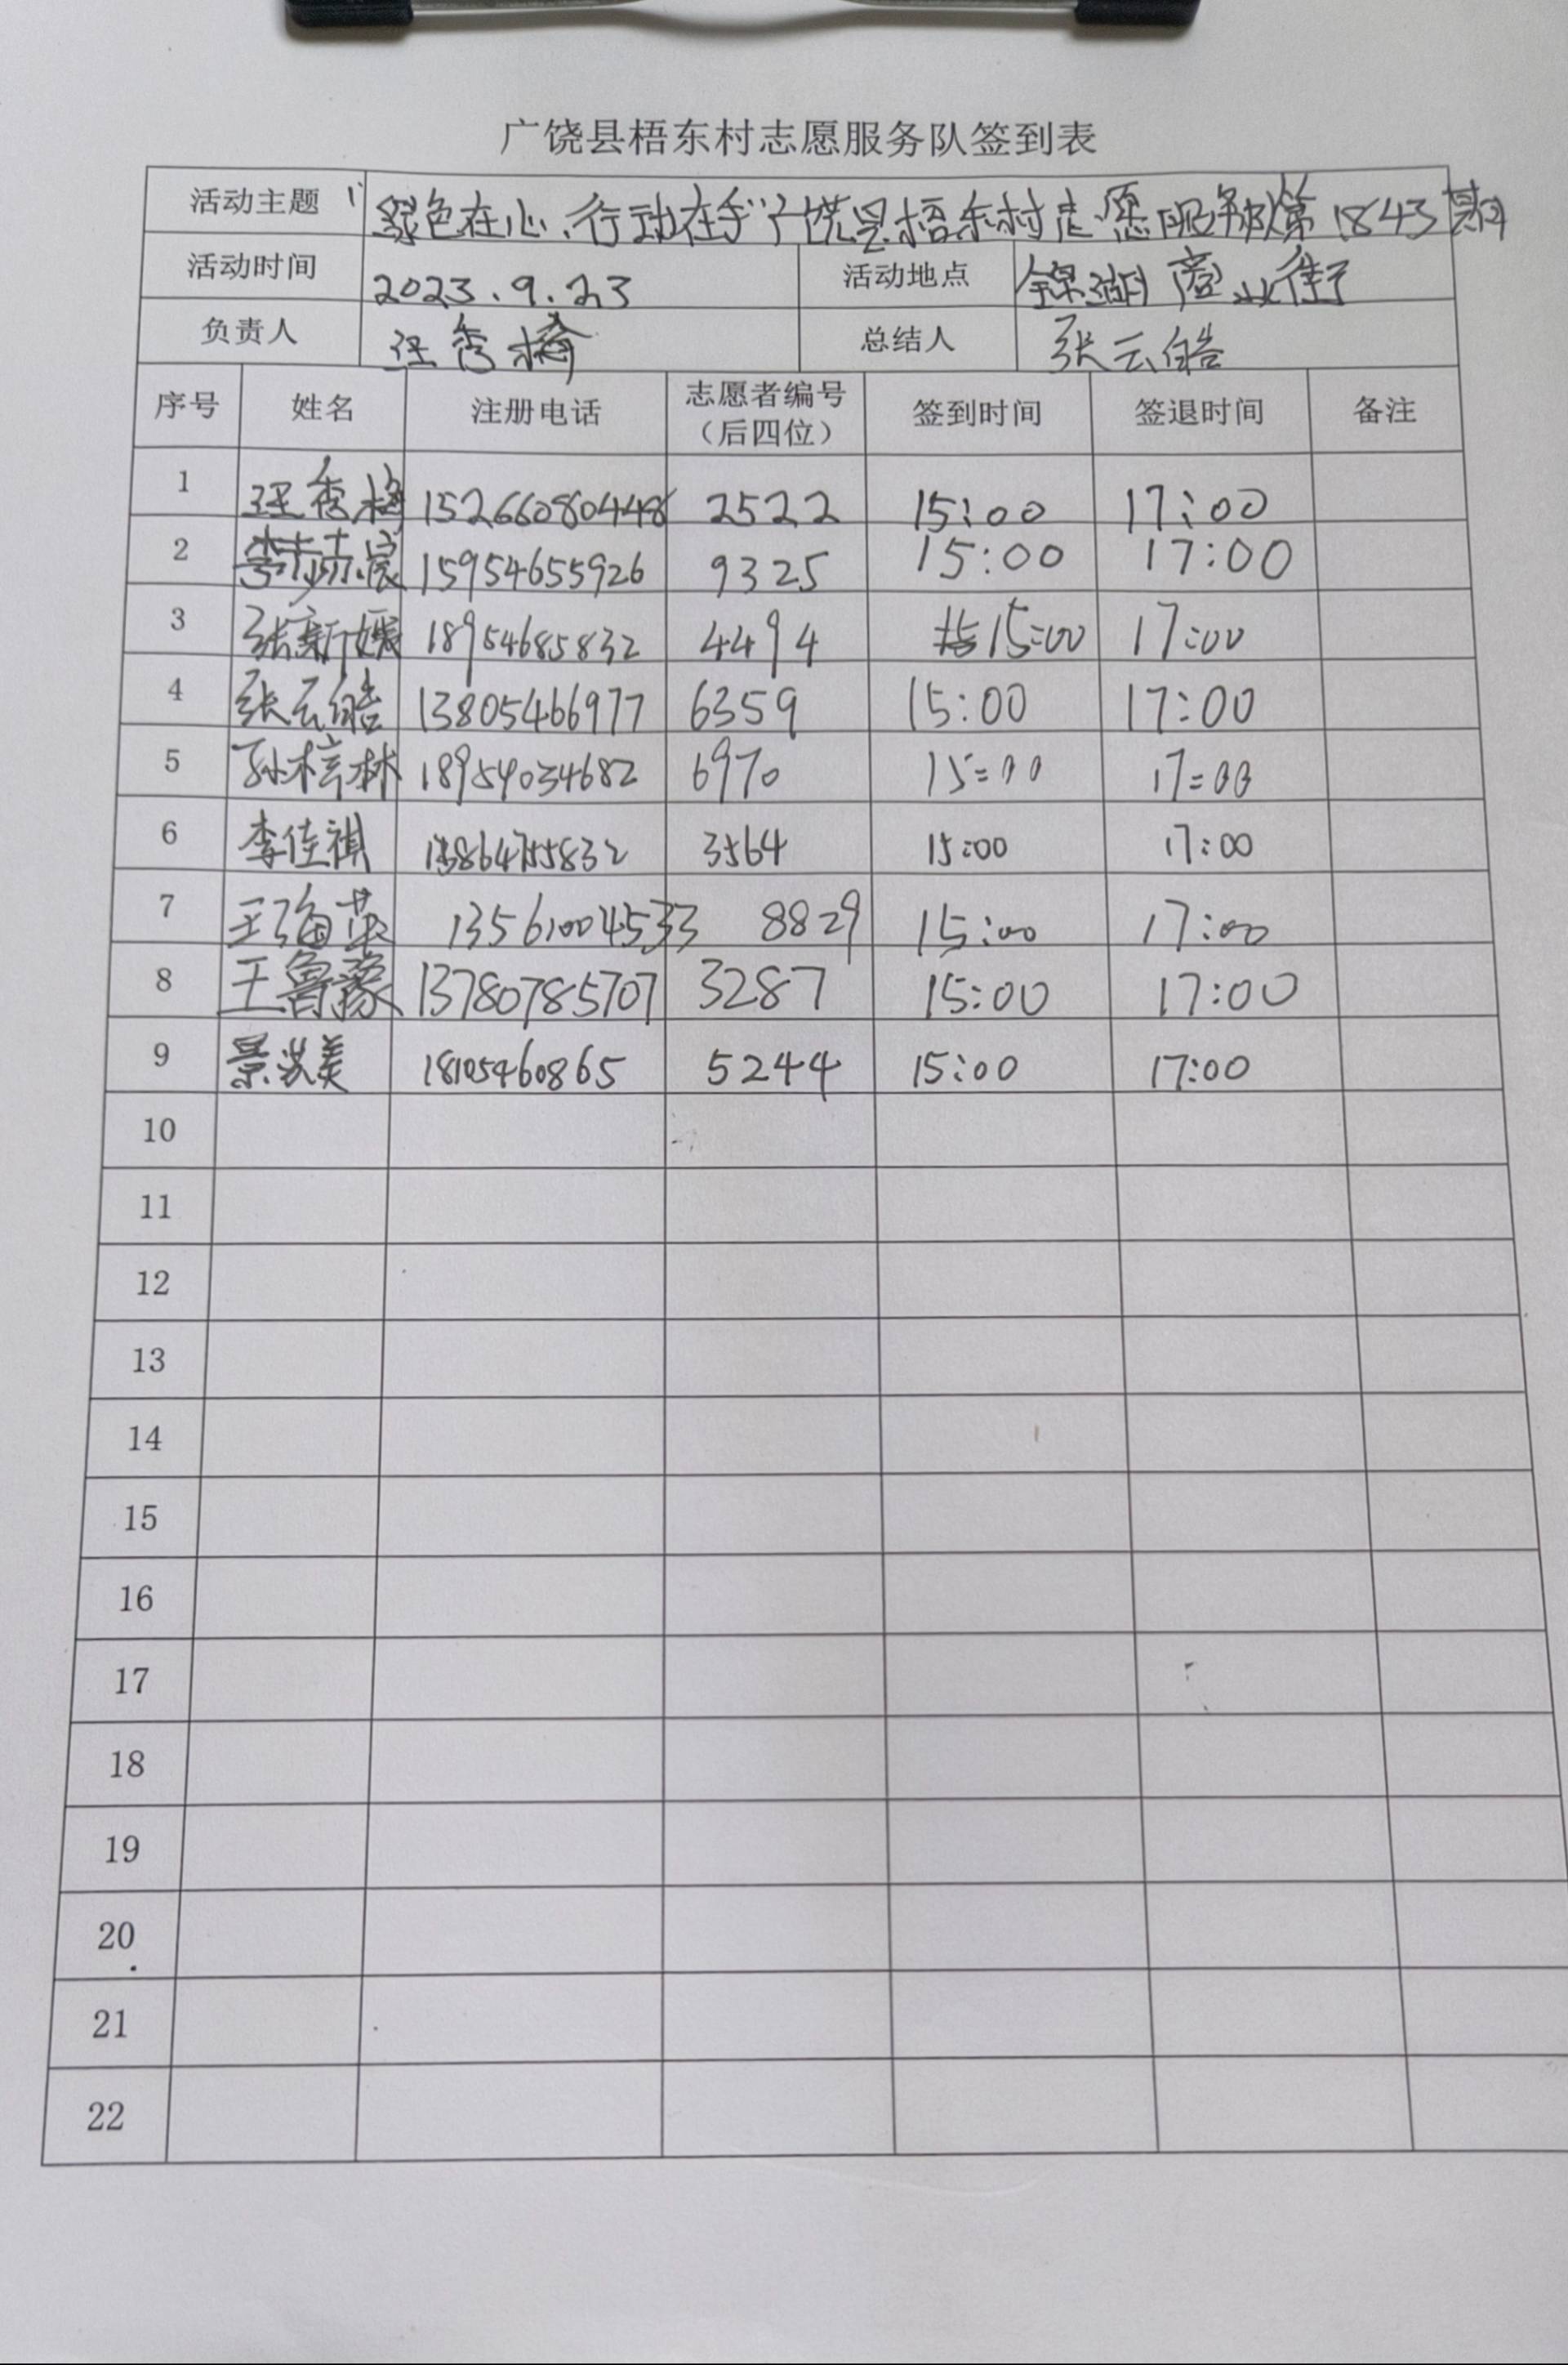 广饶县梧东村志愿服务队签到表
活动主题 "绿色在心,行动在手"广饶县梧东村志愿服务队第1843期
活动时间 2023.9.23 活动地点 锦湖商业街
负责人 汪秀梅 总结人 张云皓
序号 姓名 注册电话 志愿者编号（后四位） 签到时间 签退时间 备注
1 汪秀梅 15266080448 2522 15:00 17:00
2 15954655926 9325 15:00 17:00
3 张新媛 18954685832 4494 15:00 17:00
4 张云皓 13805466977 6359 15:00 17:00
5 孙梓林 18954034682 6970 15:00 17:00
6 李佳祺 3564 15:00 17:00
7 王海英 13561004533 8829 15:00 17:00
8 王鲁豫 13780785707 3287 15:00 17:00
9 景学美 18105460865 5244 15:00 17:00
10
11
12
13
14
15
16
17
18
19
20
21
22